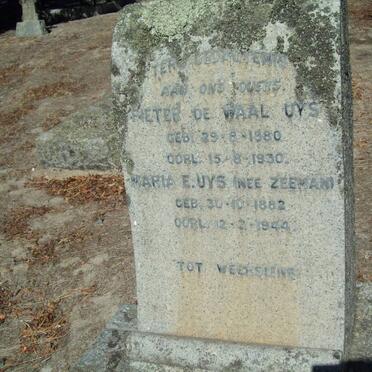 TER GEDAGTENIS
AAN ONS OUERS.
PIETER DE WAAL UYS
GEB. 29-8-1880
OORL. 15-8-1930.
MARIA E. UYS (NEE ZEEMAN)
GEB. 30-10-1882
OORL. 12-2-1944.
TOT WEERSIENS